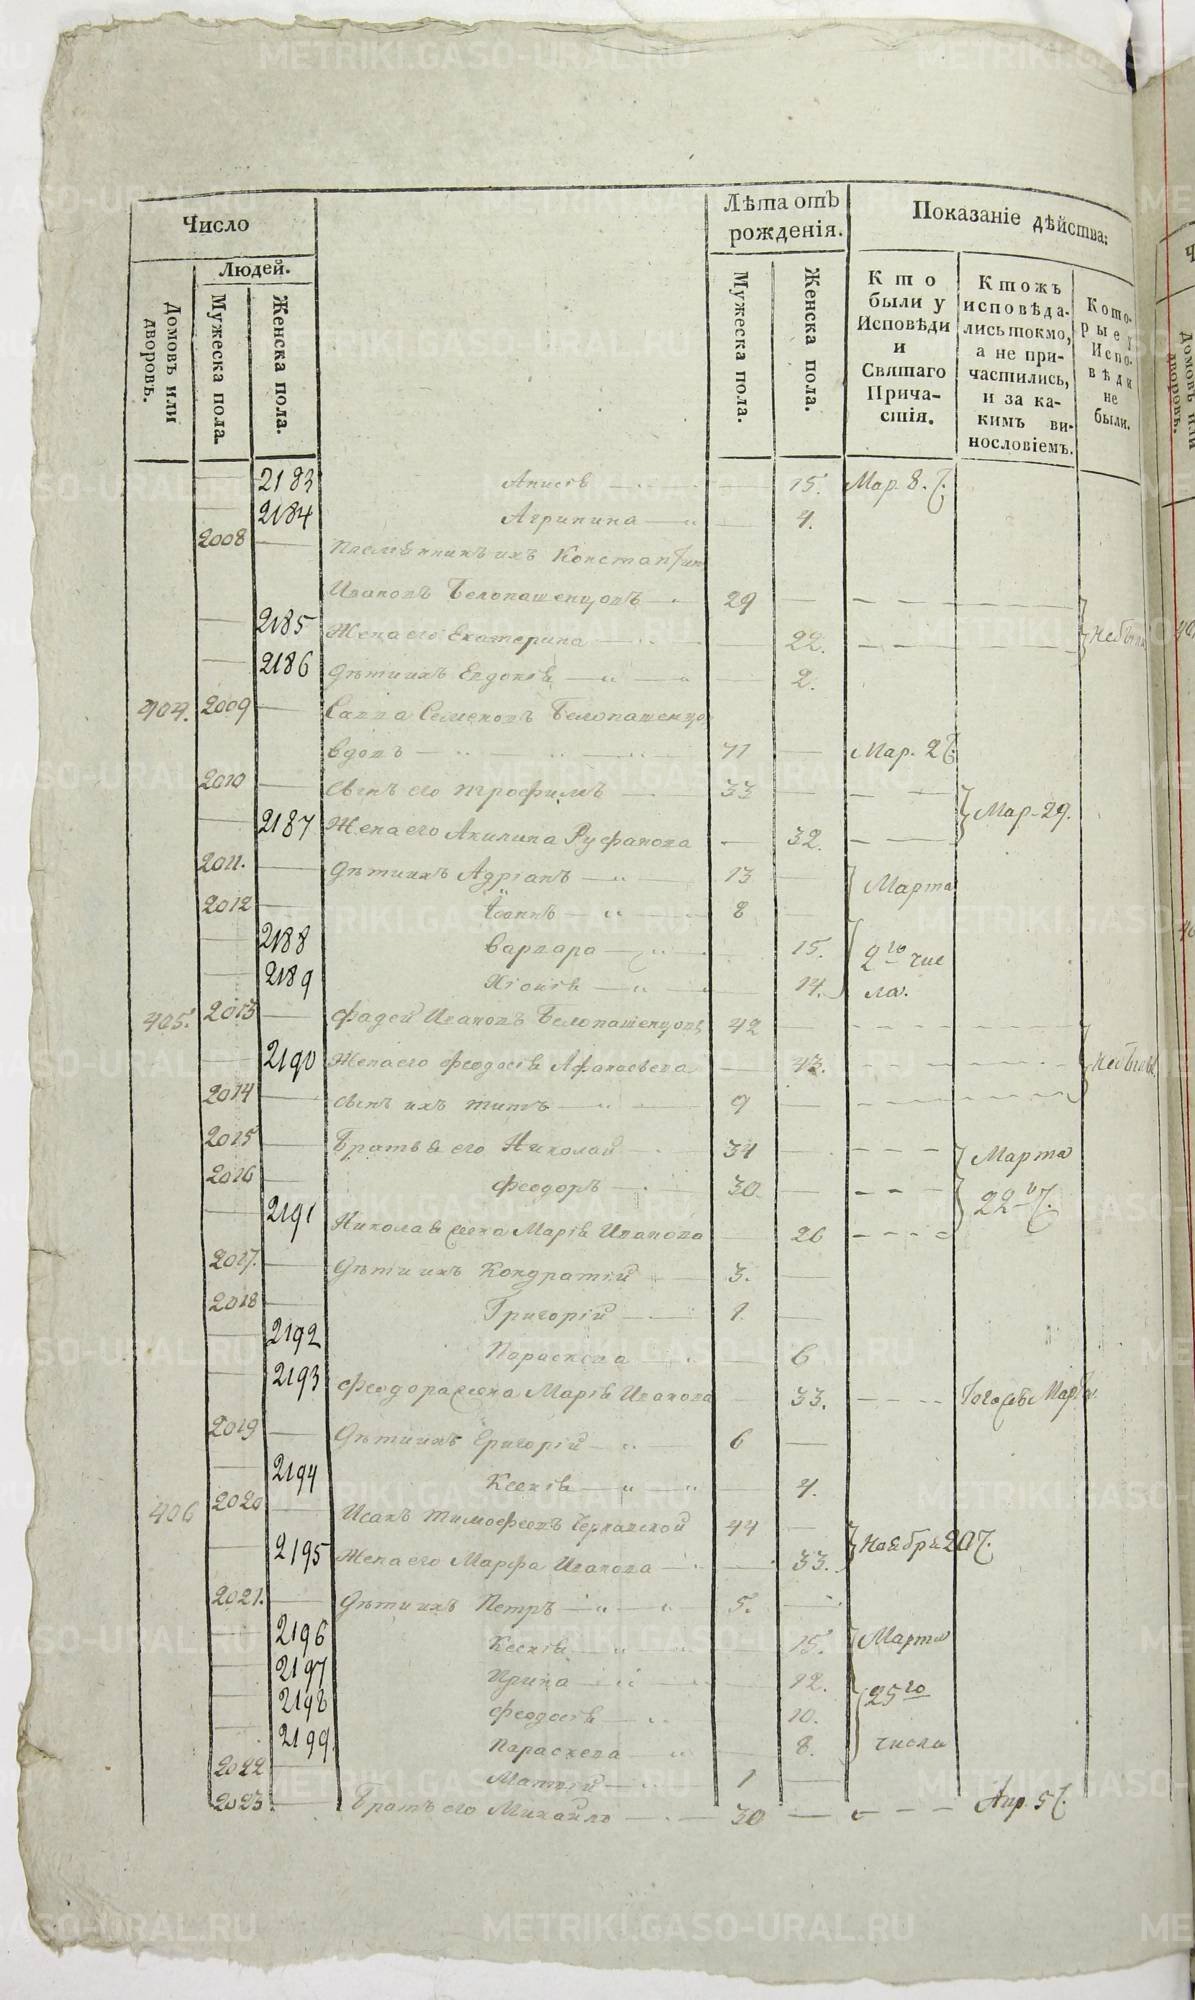 Число
Лѣта отъ рождения.
Показаніе дѣйства:
Людей.
Домовъ или дворовъ.
Мужеска пола.
Женска пола.
Мужеска пола.
Женска пола.
Кто были у Исповѣди и Святаго Причастія.
Ктожъ исповѣдались токмо, а не причастились, и за какимъ винословіемъ.
Которые у Исповѣди не были.
2183 Анисія 15. Мар. 8.
2184 Агрипина 4.
2008 Племянникъ ихъ Константин
Ивановъ Белопашенцовъ 29
2185 Жена его Екатерина 22.
2186 Дѣти ихъ Евдокія 2.
404. 2009 Савва Семеновъ Белопашенцо
вдовъ 71 Мар. 2
2010 Сынъ его Трофимъ 33
Мар. 29.
2187 Жена его Акилина Руфанова 32.
2011. Дѣти ихъ Адріанъ 13 Марта
2012 Іоаннъ 8
2188 Варвара 15. 2го чис
2189 Хіонія 14. ла.
405. 2013 Фадей Ивановъ Белопашенцовъ 42
2190 Жена его Феодосія Афанасьева 43. Небыли
2014 Сынъ ихъ Титъ 9
2015 Братья его Николай 34 Марта
2016 Феодоръ 30 22
2191 Николая жена Марія Иванова 26
2017. Дѣти ихъ Кондратій 3.
2018 Григорій 1.
2192 Параскева 6
2193 Феодора жена Марія Иванова 33.
2019 Дѣти ихъ Григорій 6
2194 Ксенія 4.
406 2020 Исакъ Тимофеевъ 44
Ноября 20
2195 Жена его Марфа Иванова 33.
2021. Дѣти ихъ Петръ 5.
2196 Ксенія 15. Марта
2197 Ирина 12.
2198 Феодосія 10. 25го
2199 Параскева 8. числа
2022 Матвей 1
2023. Братъ его Михайло 30 Апр. 5
METRIKI.GASO-URAL.RU